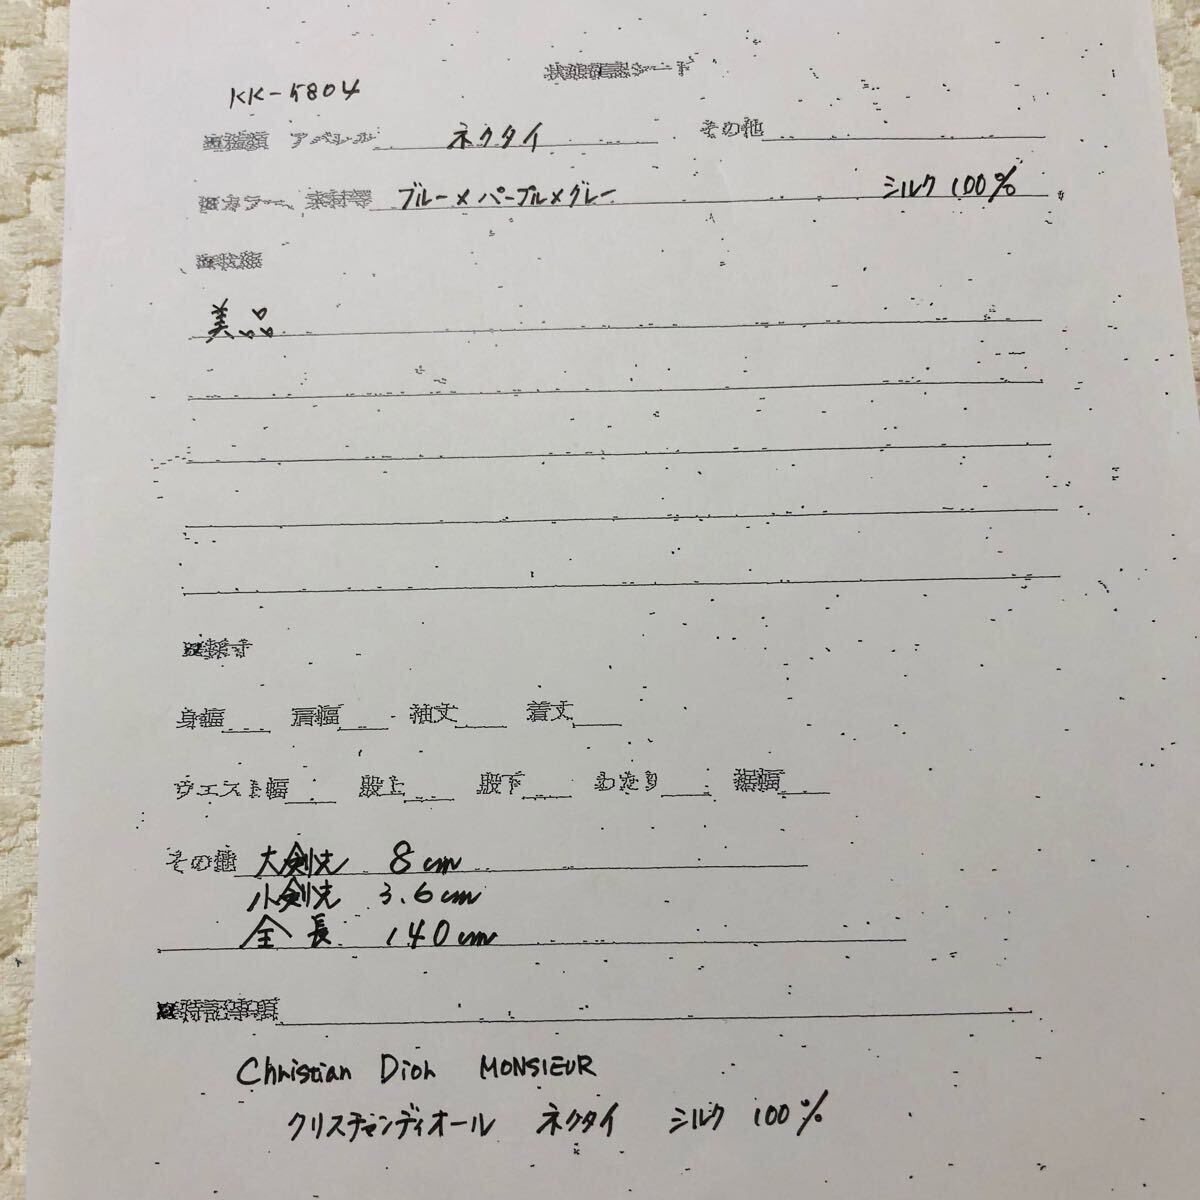 状態確認シート
KK-5804
■種類 アパレル ネクタイ その他
■カラー、素材等 ブルー×パープル×グレー シルク 100%
■状態
美品
■採寸
身幅 肩幅 袖丈 着丈
ウエスト幅 股上 股下 わたり 裾幅
その他 大剣先 8cm
小剣先 3.6cm
全長 140cm
■特記事項
Christian Dior MONSIEUR
クリスチャンディオール ネクタイ シルク 100%